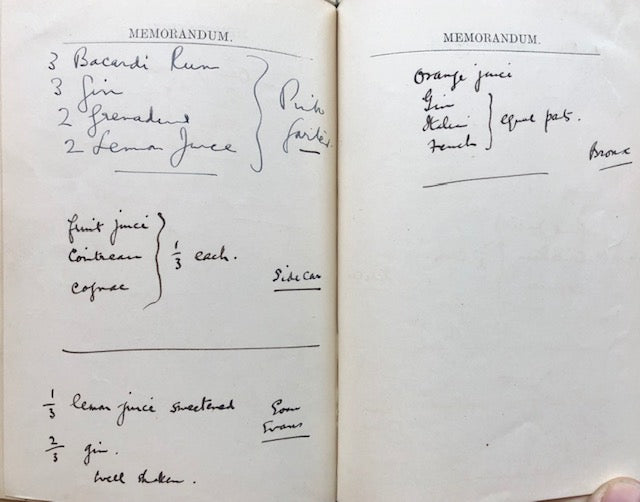 MEMORANDUM.
3 Bacardi Rum
3 Gin
2 Grenadine
2 Lemon Juice
Pink
Garter
fruit juice
Cointreau
Cognac
1/3 each.
Side Car
1/3 lemon juice sweetened
2/3 gin.
Well shaken.
Evans
MEMORANDUM.
Orange juice
Gin
Italian
French
equal parts.
Bronx